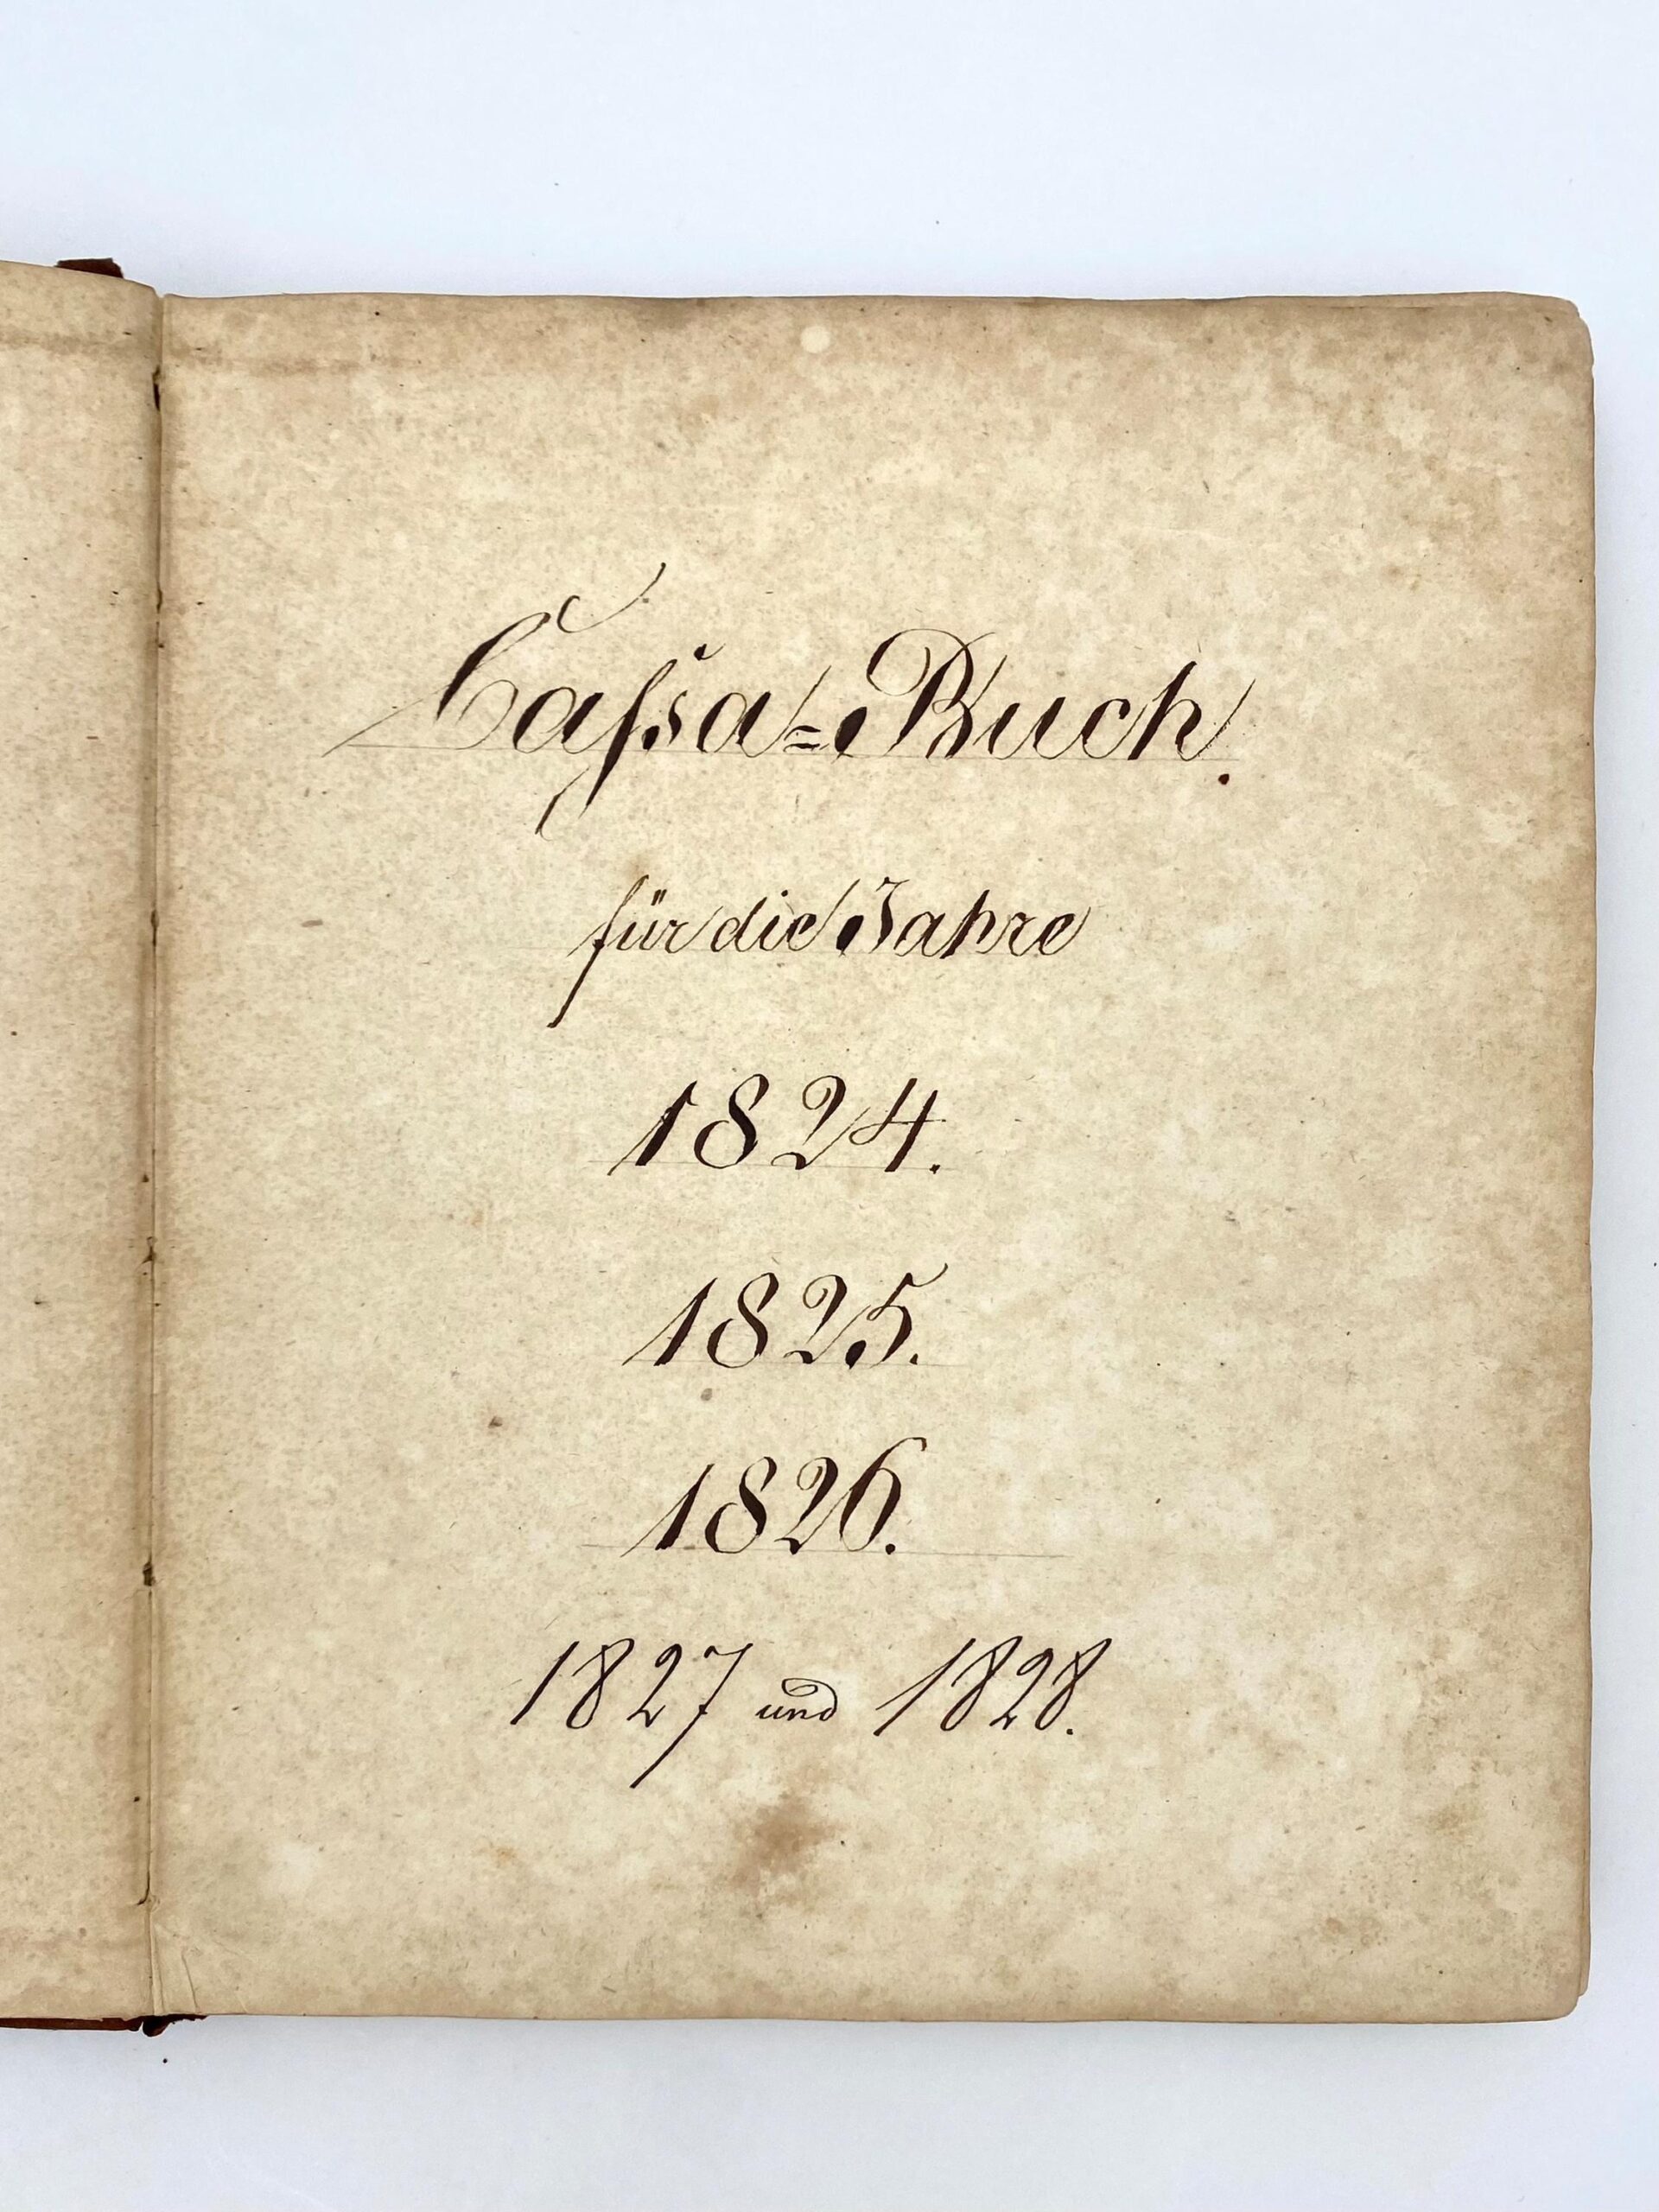 Caſsa=Buch.
für die Jahre
1824.
1825.
1826.
1827 und 1828.